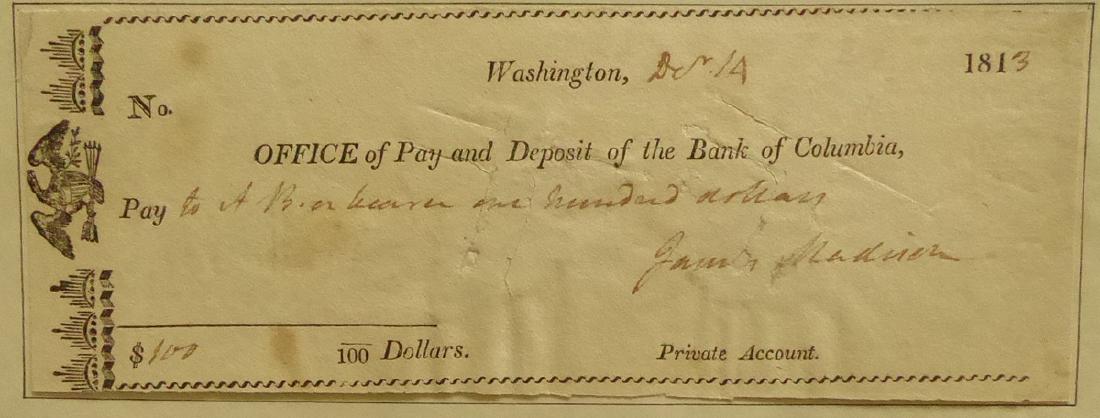 Washington, Decr. 14 1813
No.
OFFICE of Pay and Deposit of the Bank of Columbia,
Pay to A B. or bearer one hundred dollars
James Madison
$100 100 Dollars. Private Account.